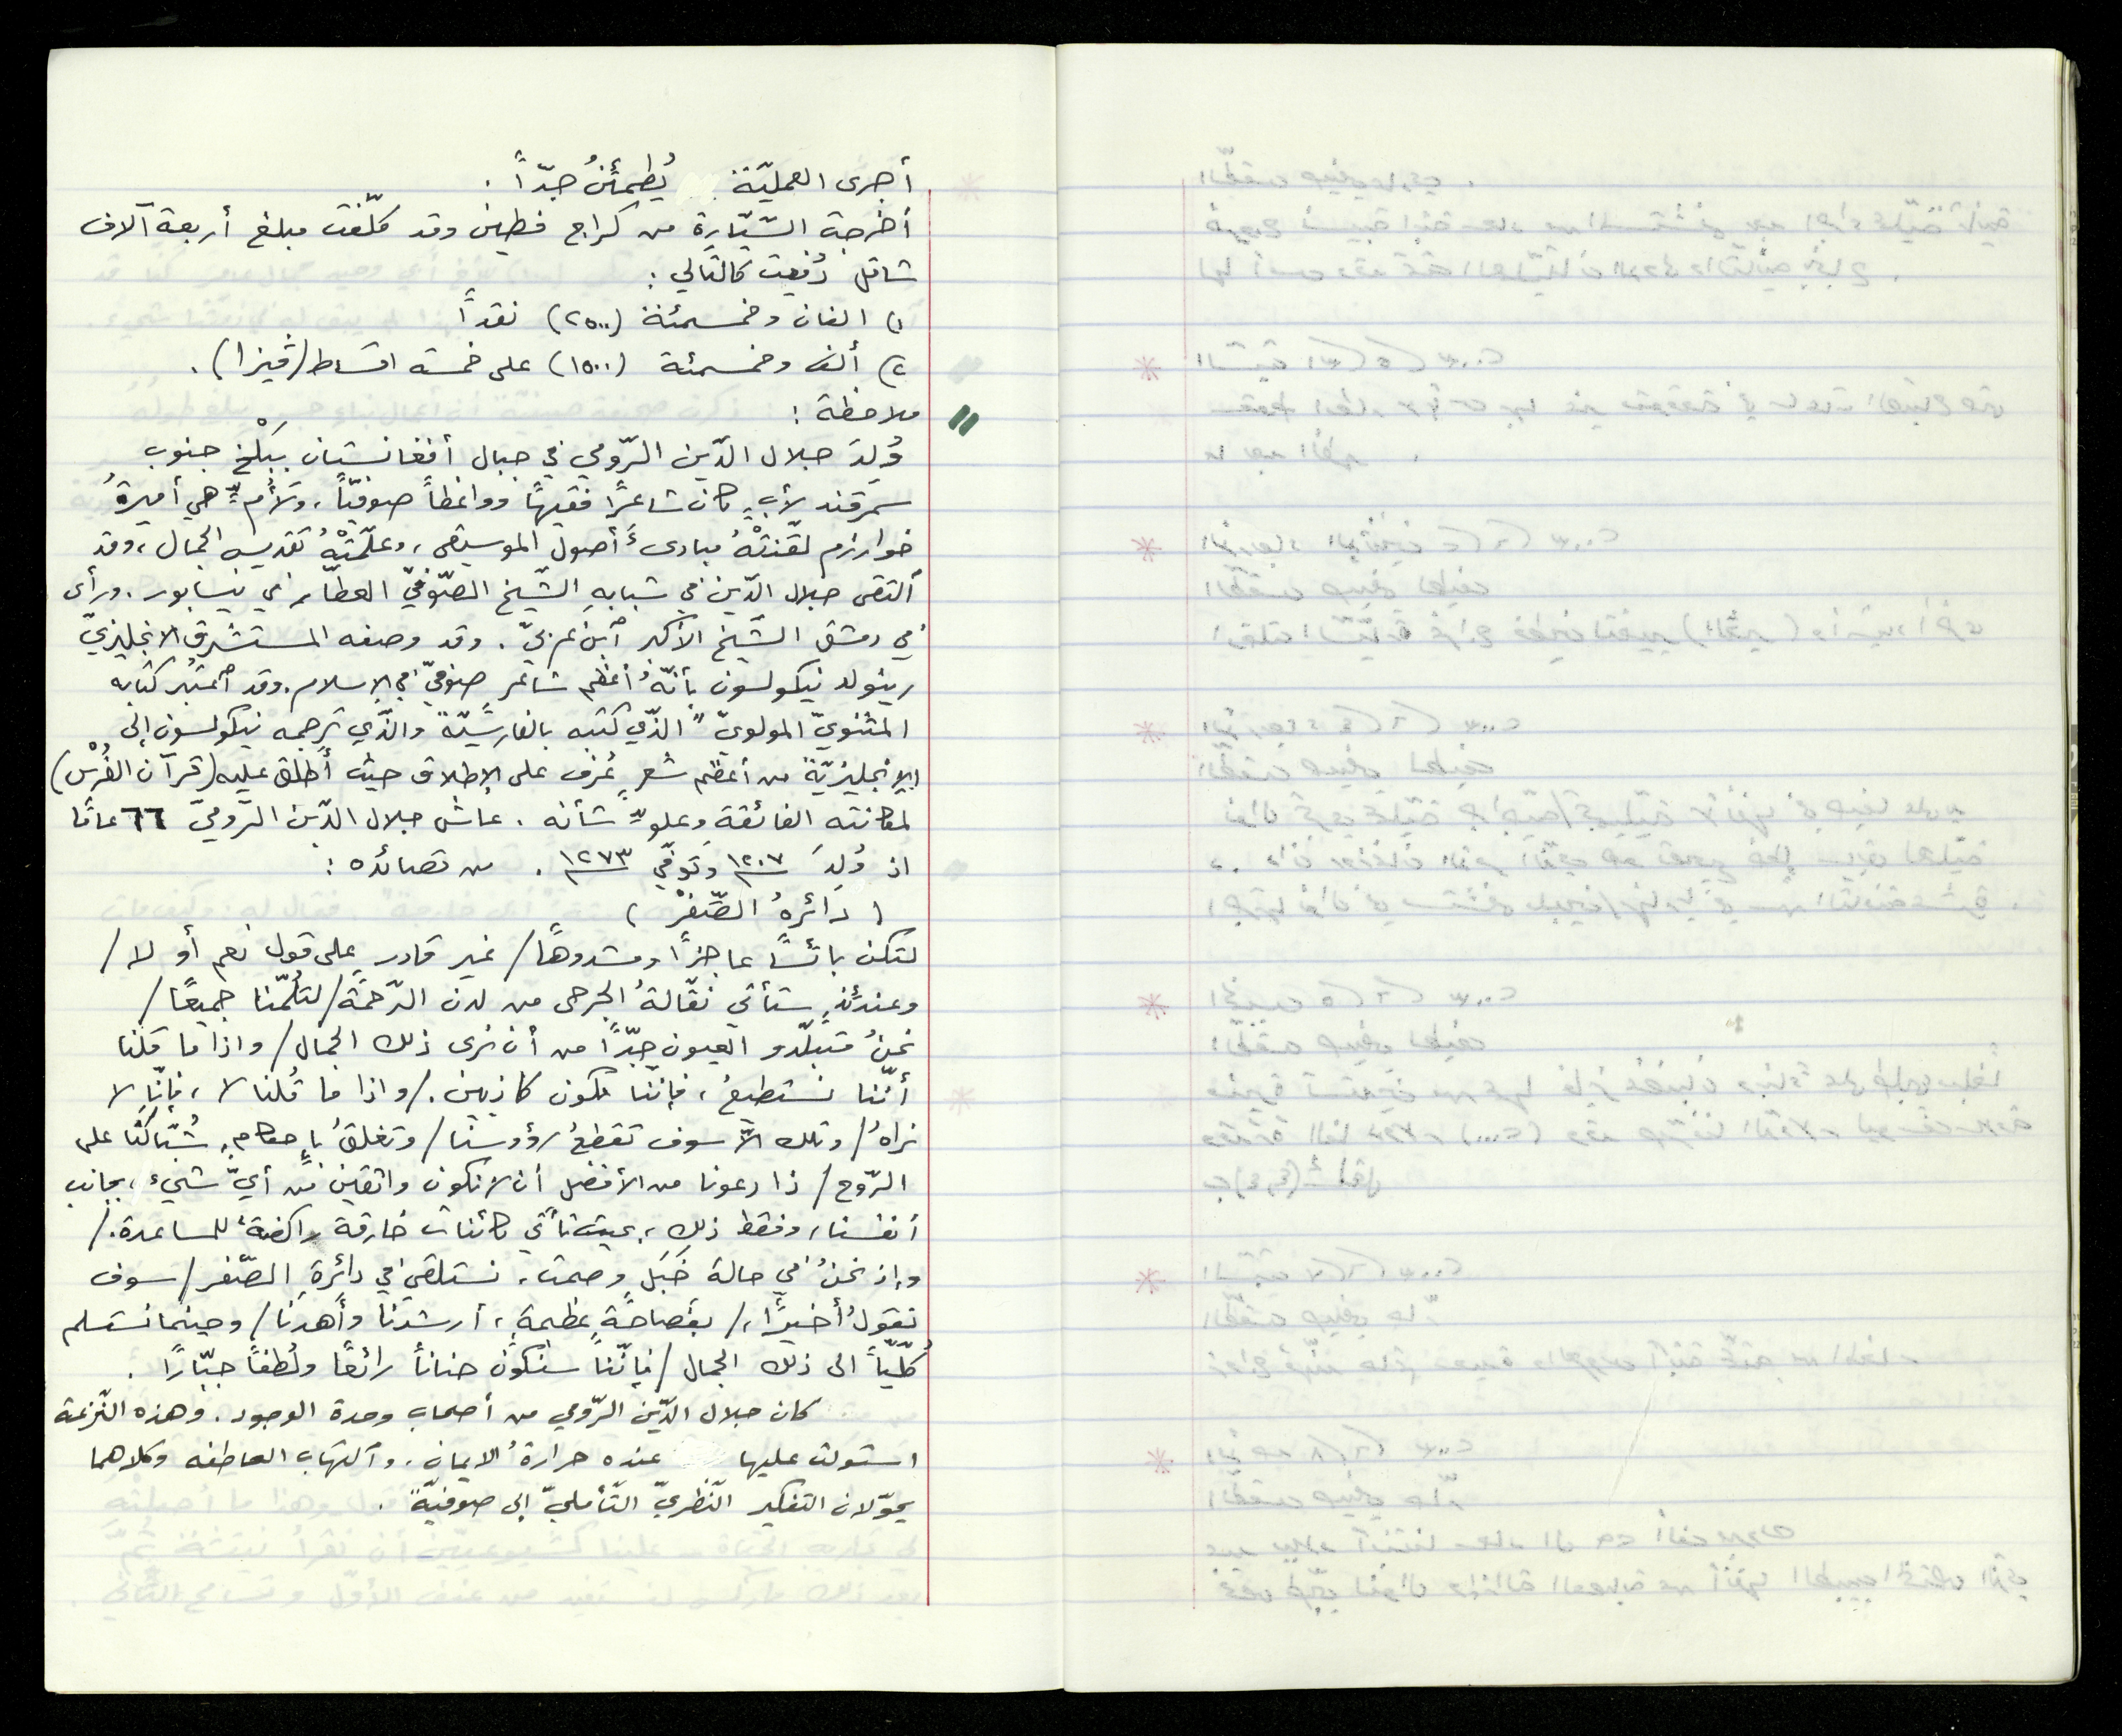 أجرى العمليّة يُطمئنُ جدّاً .
أخرجت السّيّارة من كراج فطين وقد كلّفت مبلغ أربعة آلاف
شاقل دُفعت كالتالي :
١) الفان وخمسمئة (٢٥٠٠) نقداً
٢) ألف وخمسمئة (١٥٠٠) على خمسة اقساط (ڤيزا) .
ملاحظة :
وُلِدَ جلال الدّين الرّومي في جبال أفغانستان ببلْخ جنوب
سمرقند لأبٍ كان شاعرًا فقيهًا وواعظاً صوفيّاً، ولأُمٍّ هي أميرةُ
خوارزم لقّنتْهُ مبادئَ أصول الموسيقى، وعلّمتْهُ تقديس الجمال، وقد
ألتقى جلال الدّين في شبابهِ الشّيخ الصّوفيّ العطّار في نيسابور. ورأى
في دمشق الشّيخ الأكبر أبن عربيّ . وقد وصفه المستشرق الانجليزيّ
رينولد نيكولسون بأنّهُ أعظم شاعرٍ صوفيّ في الإسلام. وقد أعتبر كتابه
المثنويّ المولويّ" الذّي كتبه بالفارسيّة والذّي ترجمه نيكولسون إلى
الإنجليزيّة من أعظم شعرٍ عُرف على الإطلاق حيث أُطلق عليه (قرآن الفُرْس)
لمكانته الفائقة وعلوِّ شأنه . عاش جلال الدّين الرّوميّ ٦٦ عامًا
اذ وُلِدَ ١٢٠٧ وتوفّي ١٢٧٣ . من قصائده :
( دائرةُ الصّفرْ )
لتكن بائسًا عاجزًا ومشدوهًا/ غير قادرٍ على قول نعم أو لا /
وعندئذٍ ستأتي نقّالةُ الجرحى من لدن الرّحمة/ لتلُمّنا جميعًا /
نحنُ متبلّدو العيون جدّاً من أن نرى ذلك الجمال / واذا ما قلنا
أنّنا نستطيعُ، فإنّنا نكون كاذبين ./ واذا ما قُلنا لا، فإنّنا لا
نراهُ/ وتلك الّا سوف تقطعُ رؤوسنا/ وتغلقُ بإحكامٍ شُبّاكنا على
الرّوح / ذا دعونا من الأفضل أن لا نكون واثقين من أيّ شيء، بجانب
أنفسنا، وفقط ذلك، بحيث تأتي كائنات خارقة راكضةً للمساعدة. /
وإذ نحنُ في حالة خَبَلٍ وصمت، نستلقي في دائرةِ الصّفر/ سوف
نقولُ أخيرًا،/ بفصاحةٍ عظيمةٍ، أرشدنا وأهدنا/ وحينما نستسلم
كُلّيّاً الى ذلك الجمال / فإنّنا سنكون حناناً رائعًا ولُطفاً جبّارًا .
كان جلال الدّين الرّومي من أصحاب وحدة الوجود. وهذه النّزعة
استولت عليها عنده حرارةُ الايمان، وٱلتهاب العاطفه وكلاهما
يحوّلان التفكير النّظريّ التّأمليّ إلى صوفيّة .